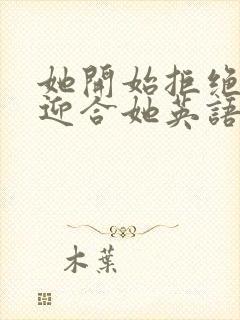 她開始拒绝
迎合她英語
木葉